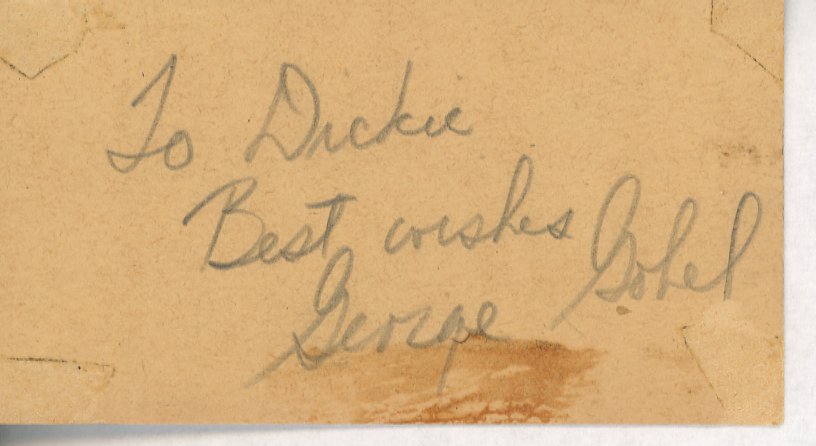 To Dickie
Best wishes
George Gobel